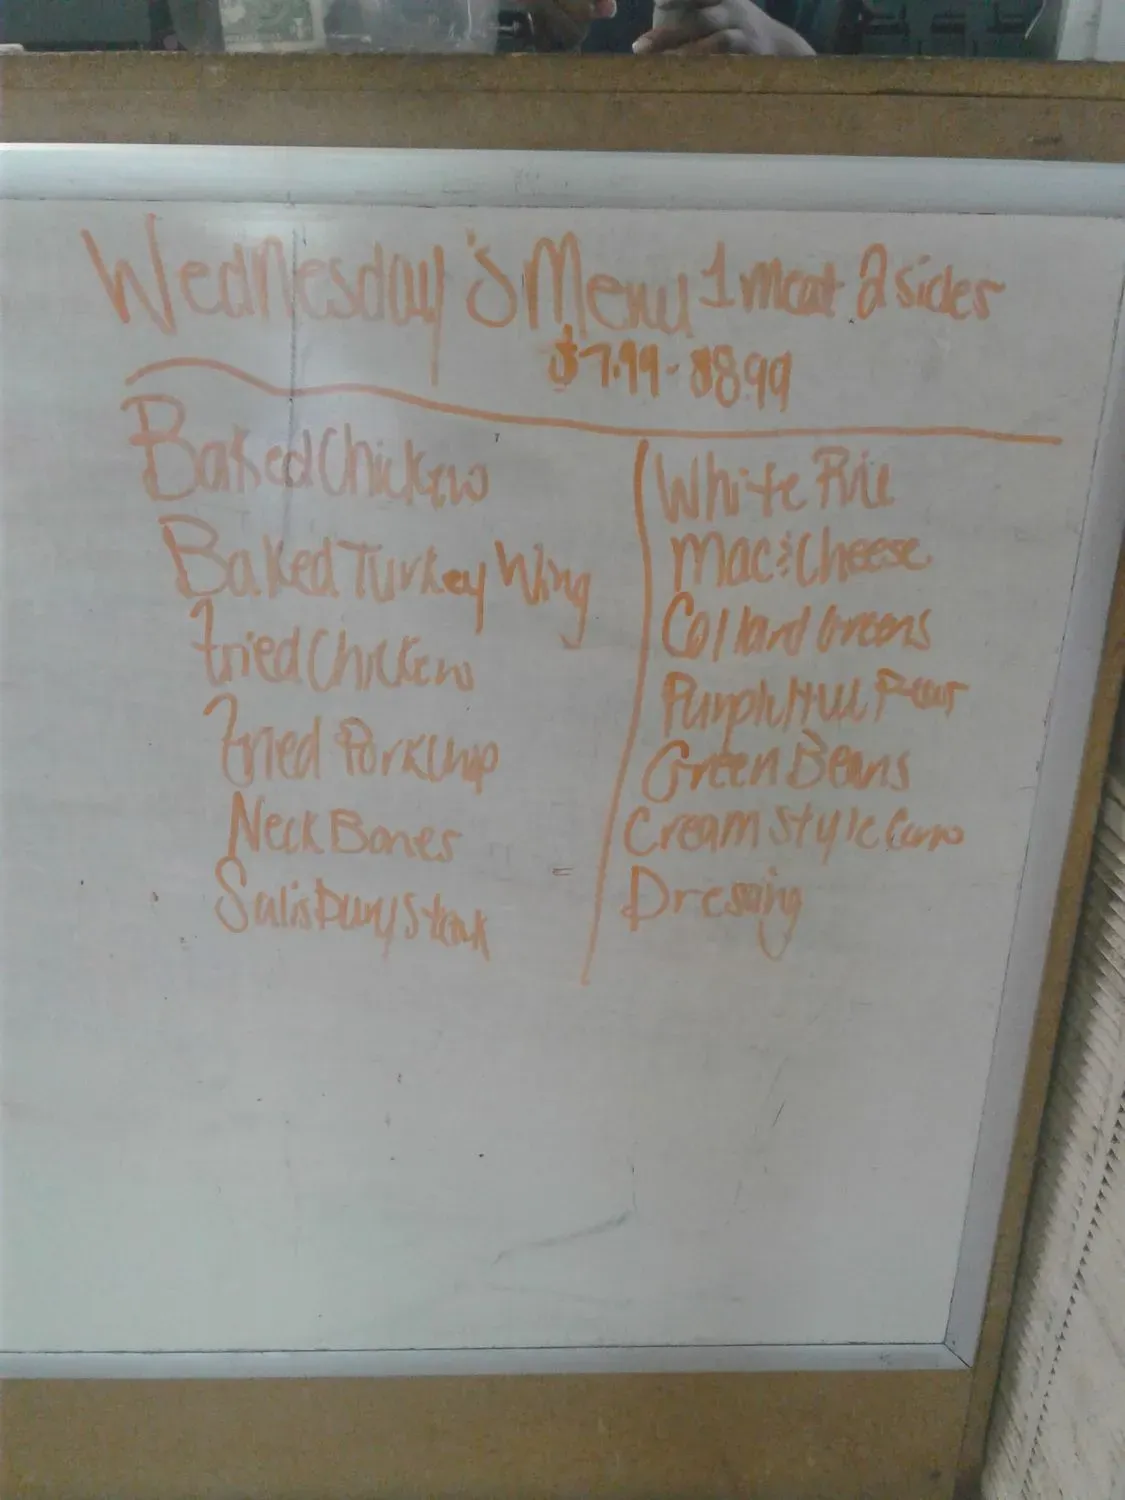 Wednesday's Menu 1 meat 2 sides
$7.99 - $8.99
Baked Chicken
Baked Turkey Wing
Fried Chicken
Fried Pork Chop
Neck Bones
Salisbury Steak
White Rice
Mac & Cheese
Collard Greens
Purple Hull Peas
Green Beans
Cream Style Corn
Dressing